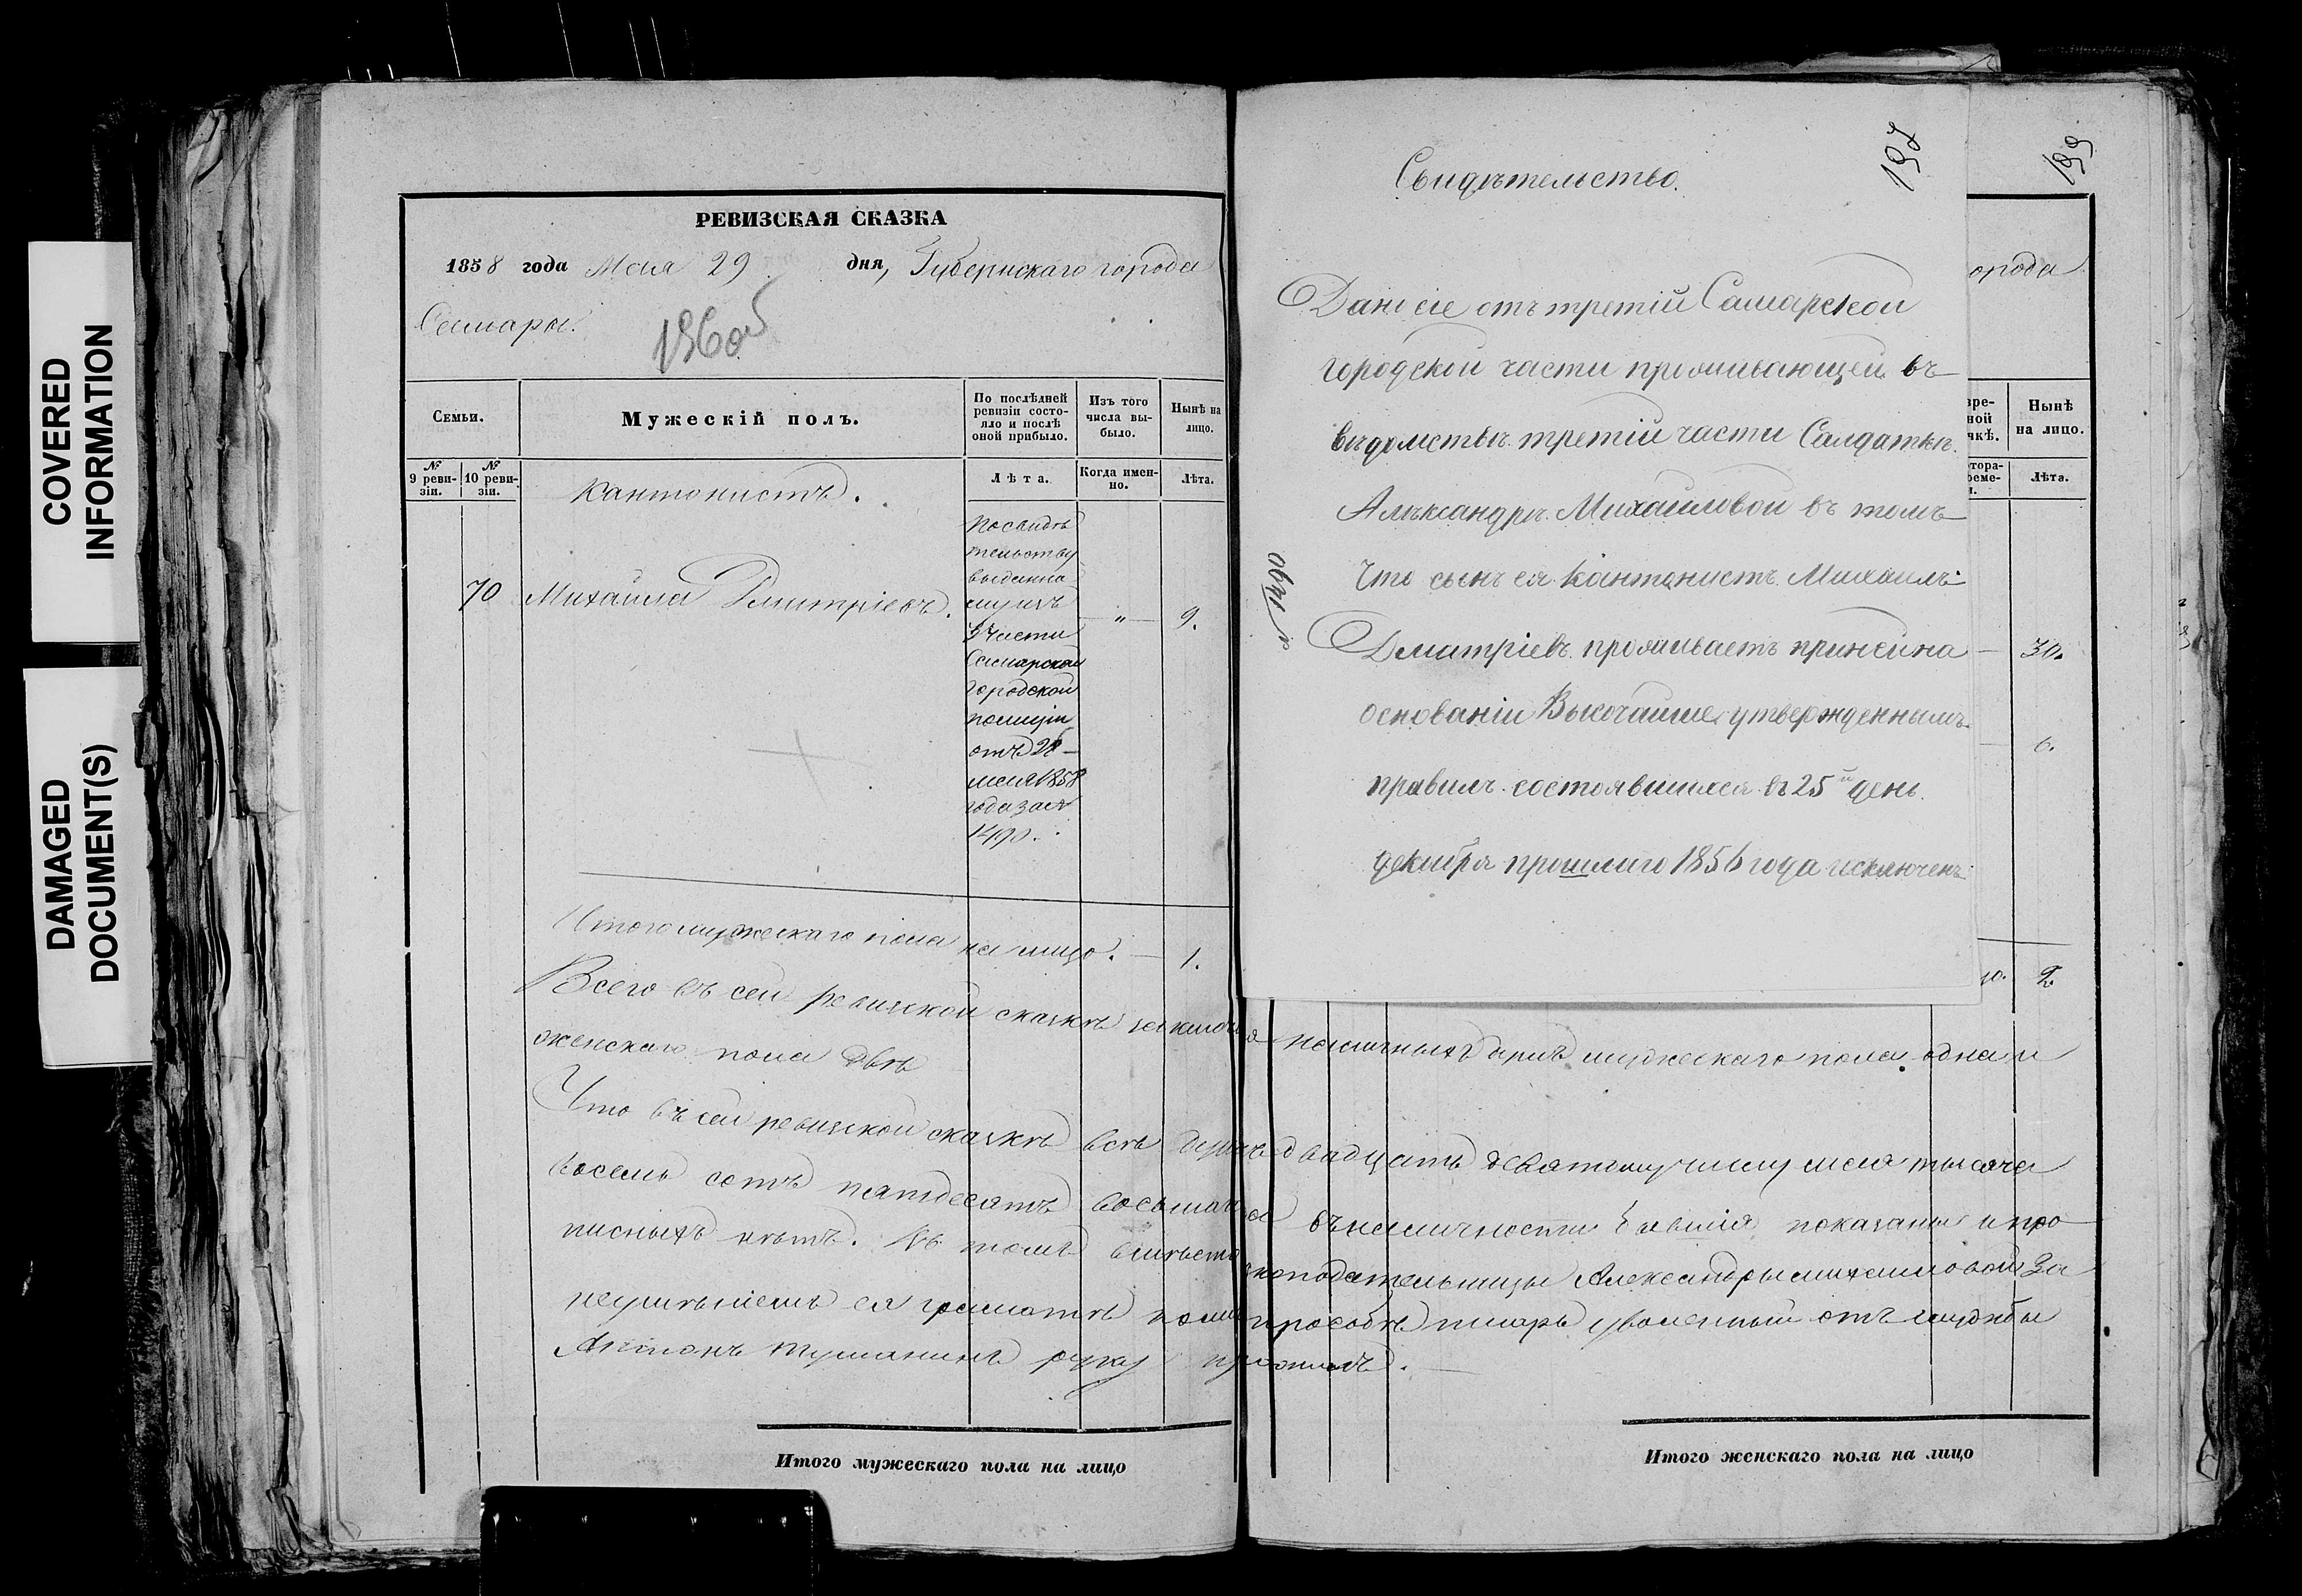 COVERED
INFORMATION
DAMAGED
DOCUMENT(S)
РЕВИЗСКАЯ СКАЗКА
1858 года Мая 29 дня, Губернскаго города
Самары.
Семьи.
Мужескій полъ.
По послѣдней
ревизіи состо-
яло и послѣ
оной прибыло.
Изъ того
числа вы-
было.
Нынѣ на
лицо.
№
9 реви-
зіи.
№
10 реви-
зіи.
Кантонистъ.
Лѣта.
Когда имен-
но.
Лѣта.
70 Михайла Дмитріевъ.
По свидѣ
тельству
выданна
му изъ
3 части
Самарской
городской
полиціи
отъ 28
мая 1858
года за №
1490.
"
9.
Итого мужескаго пола на лицо. — 1.
Всего въ сей ревизской сказкѣ заключа наличныхъ душъ мужескаго пола одна и
женскаго пола двѣ
Что въ сей ревизской сказкѣ всѣ душъ двадцать девятому числу мая тысяча
восемь сотъ пятьдесятъ восьмаго въ наличности бывшія показаны и про
писныхъ нѣтъ. Въ томъ вмѣсто подательницы Александры Михайловой за
неумѣніемъ ея грамотѣ по просьбѣ писарь уволенный отъ службы
руку приложилъ.
Итого мужескаго пола на лицо
Свидѣтельство.
198
199
Дано сіе отъ третій Самарской
городской части проживающей въ
вѣдомствѣ третій части Салдаткѣ
Алѣксандрѣ Михайловой въ томъ
Что сынъ ея Кантонистъ Михаилъ
Дматріевъ проживаетъ при ней на
основаніи Высочайше утвержденныхъ
правилъ состоявшихся въ 25й день
декабря прошлаго 1856 года исключенъ
орода
вре-
ной
чкѣ.
Нынѣ
на лицо.
отора-
реме-
и.
Лѣта.
30.
6.
ю. 2.
Итого женскаго пола на лицо